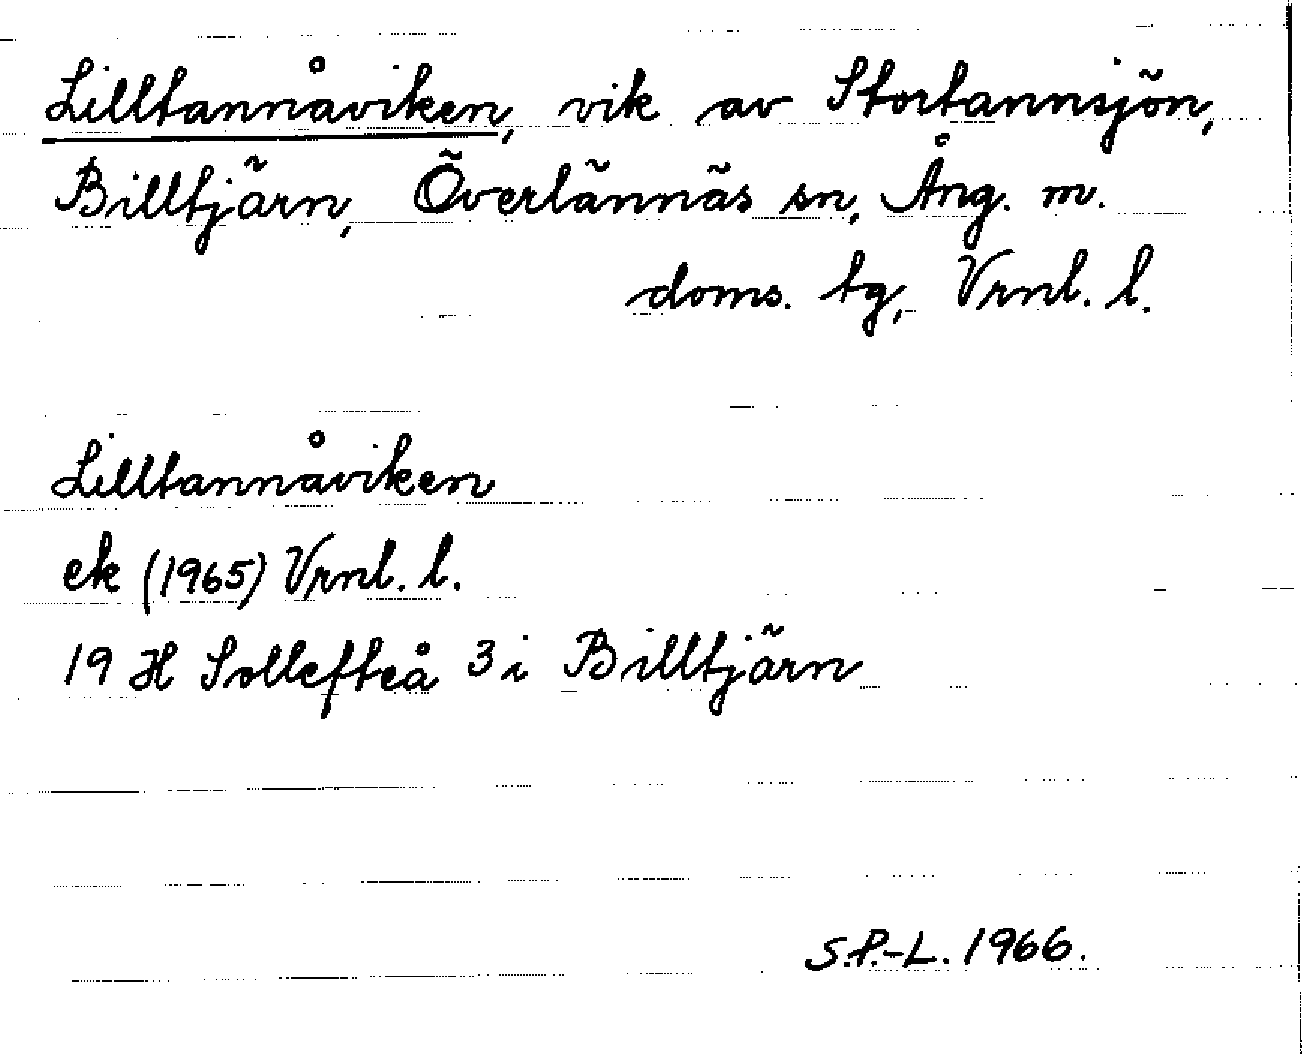 Lilltannåviken, vik av Stortannsjön,
Billtjärn, Överlännäs sn, Ång. m.
doms. tg, Vrnl. l.
Lilltannåviken
ek (1965) Vrnl. l.
19 H Sollefteå 3 i Billtjärn
S.P.-L. 1966.